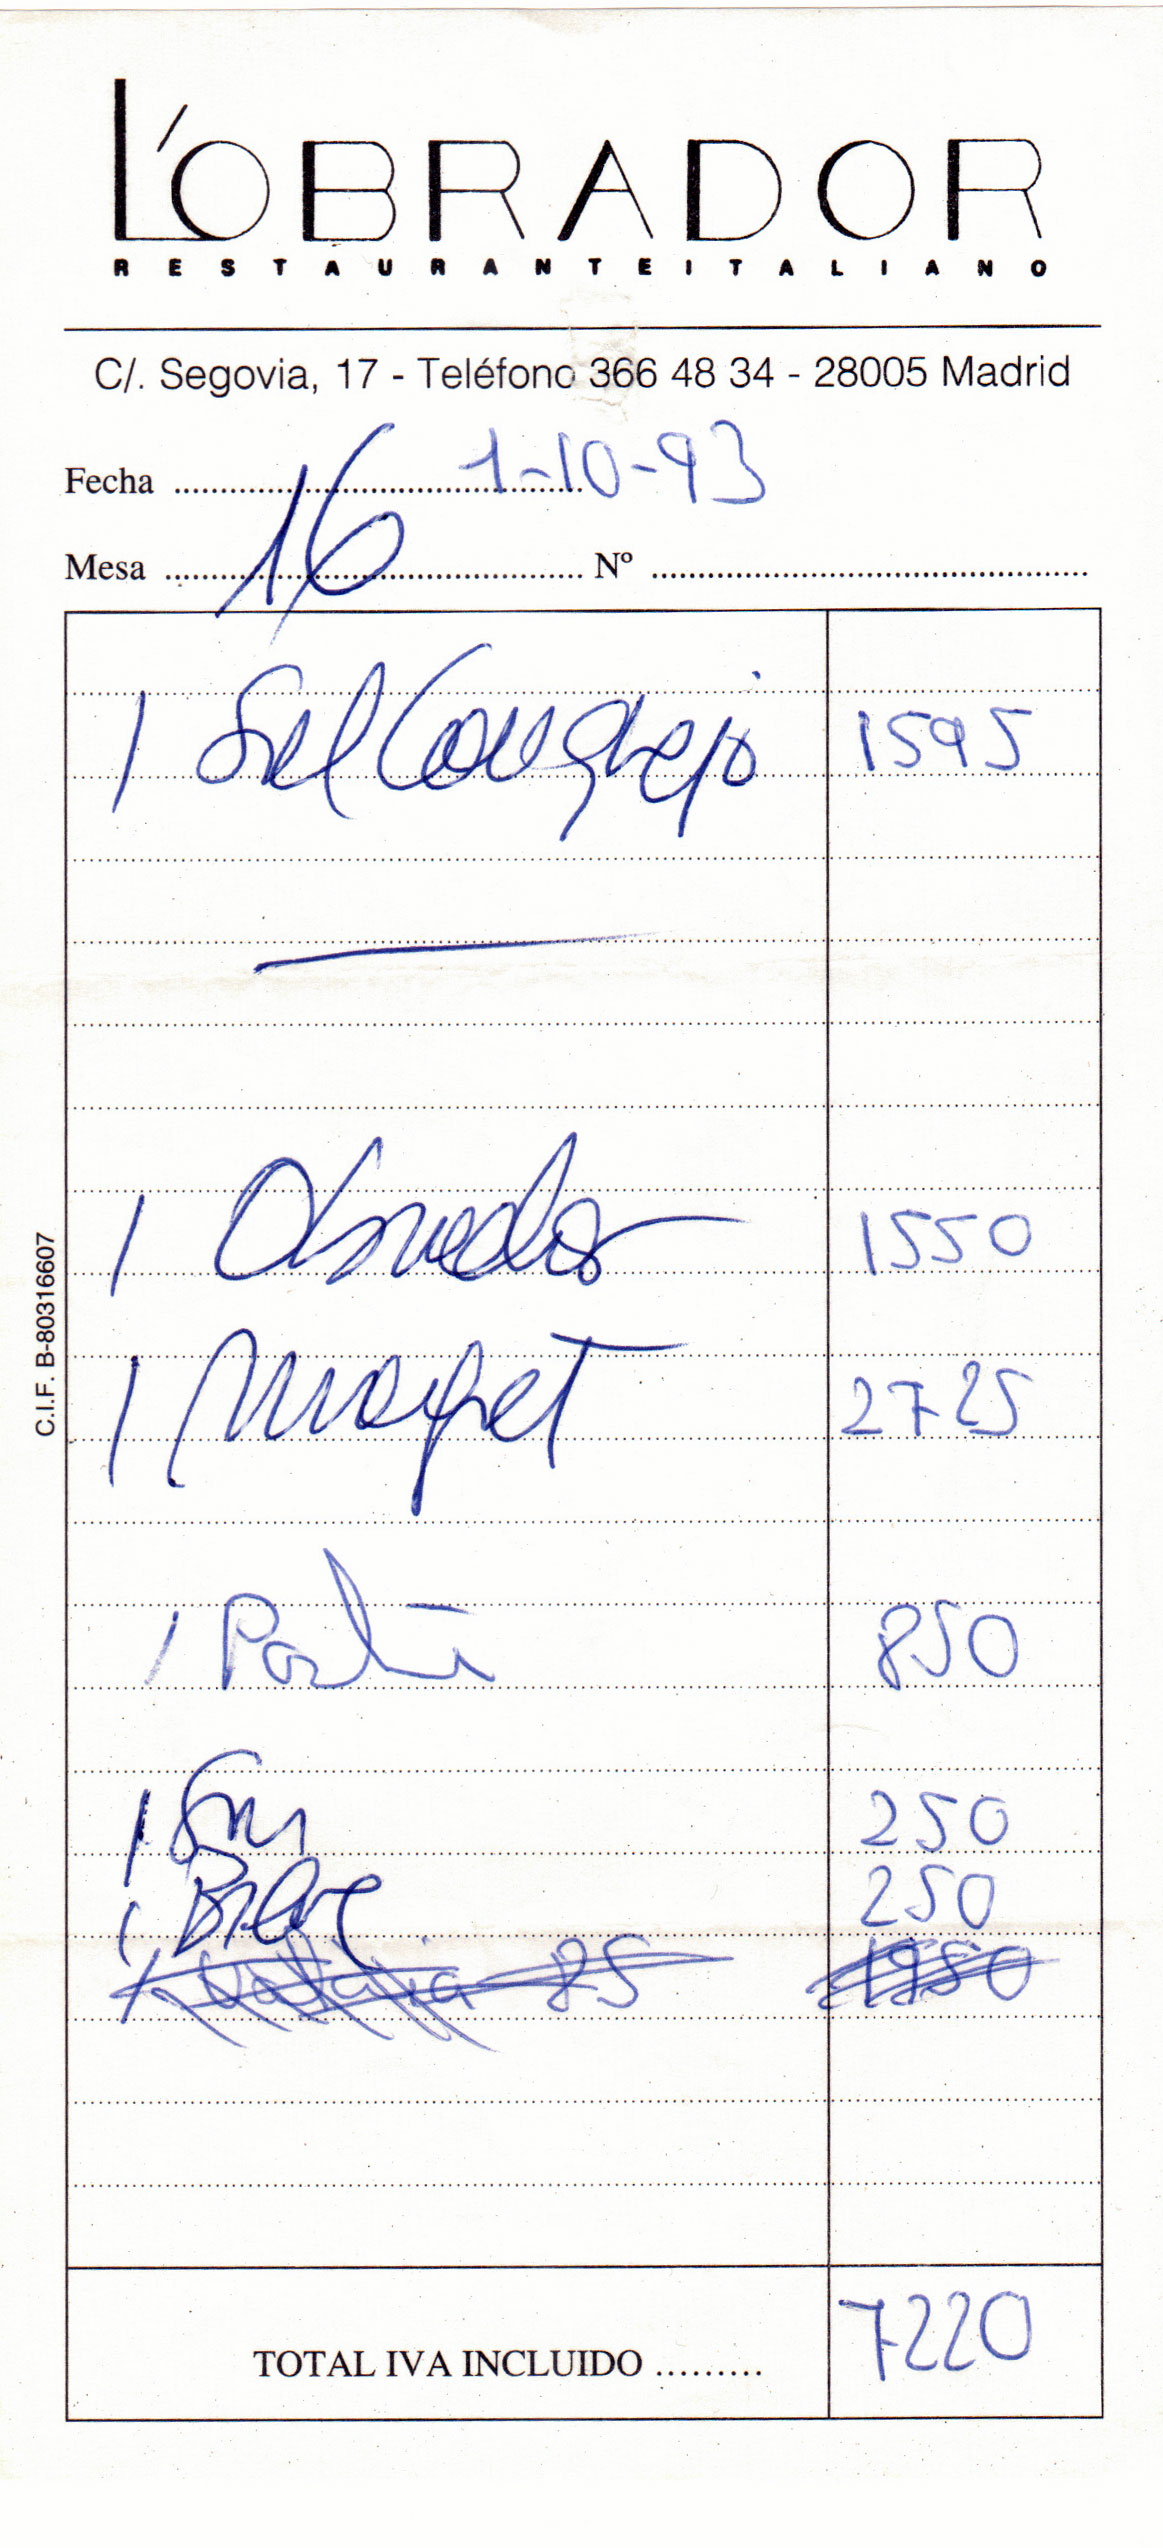 L'OBRADOR
RESTAURANTE ITALIANO
C/. Segovia, 17 - Teléfono 366 48 34 - 28005 Madrid
Fecha 1-10-93
Mesa 16 Nº
1 Sal Cangrejo 1595
1 Obrador 1550
1 Magret 2725
1 850
1 250
1 250
85 1950
TOTAL IVA INCLUIDO ......... 7220
C.I.F. B-80316607